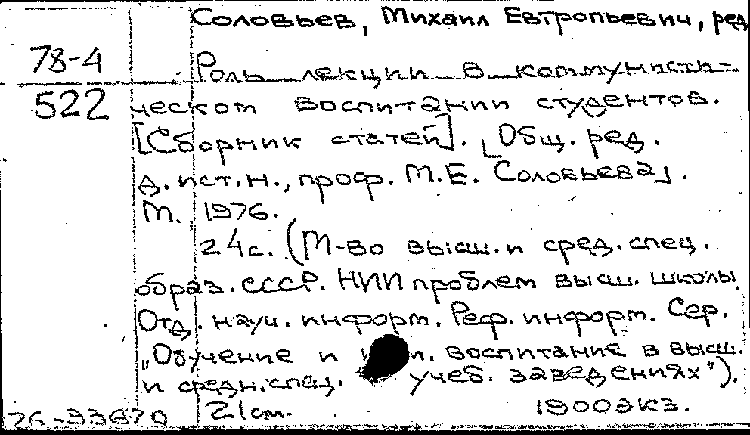 Соловьев, Михаил Евтропьевич, ред
78-4
Роль лекции в коммунисти-
522
ческом воспитании студентов.
[Сборник статей]. [Общ. ред.
д. ист. н., проф. М.Е. Соловьева].
М. 1976.
24с. (М-во высш. и сред. спец.
образ. СССР. НИИ проблем высш. школы
Отд. науч. информ. Реф. информ. Сер.
„Обучение и воспитание в высш.
и средн. спец. учеб. заведениях").
21см. 1900экз.
76-33670